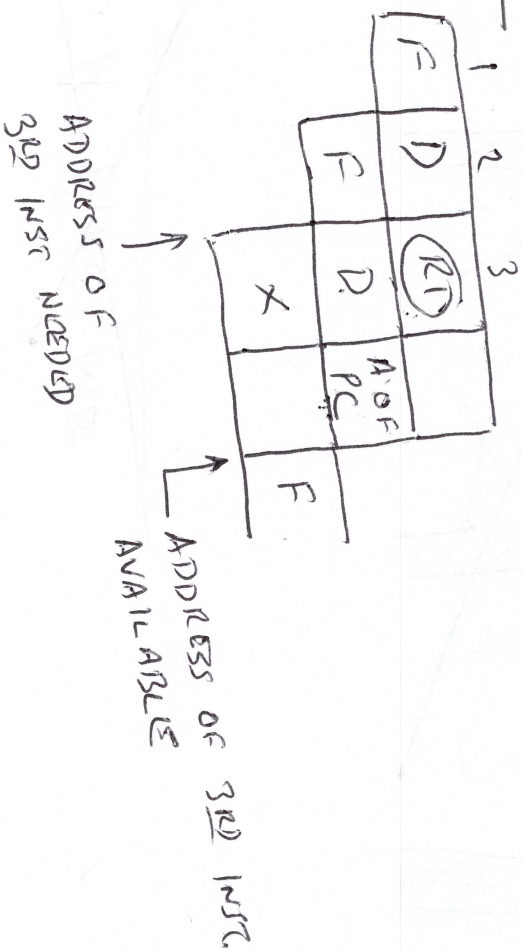 1 2 3
F D RD
F D A OF
PC
X F
ADDRESS OF
3RD INST NEEDED
ADDRESS OF 3RD INST.
AVAILABLE